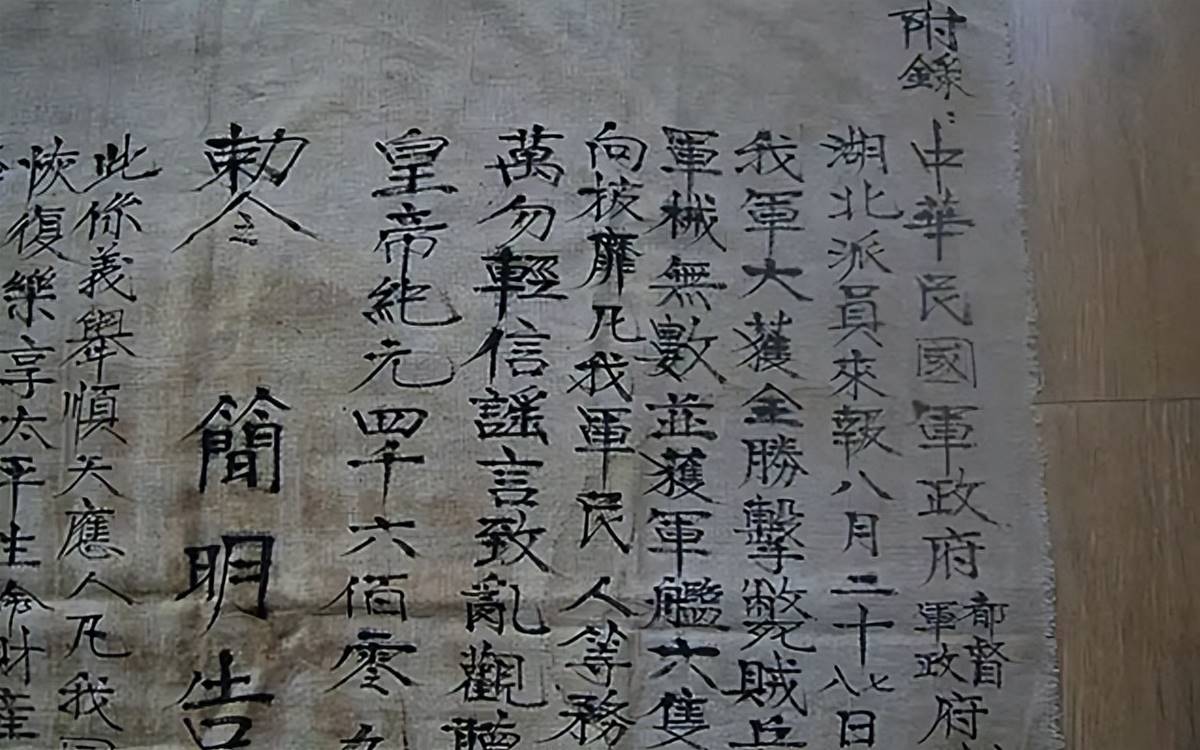 附錄：中華民國軍政府都督軍政府
湖北派員來報八月二十七八日
我軍大獲全勝擊斃賊兵
軍械無數並獲軍艦六隻
向披靡凡我軍民人等務
萬勿輕信謠言致亂觀聽
皇帝紀元四千六佰零九
勅令 簡明告
此係義舉順天應人凡我國
恢復樂享太平生命財產